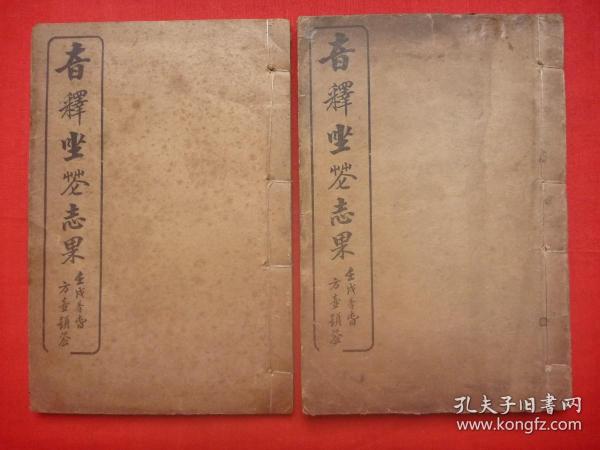 音釋坐花志果
壬戌季春
方壺題簽
音釋坐花志果
壬戌季春
方壺題簽
孔夫子旧书网
www.kongfz.com